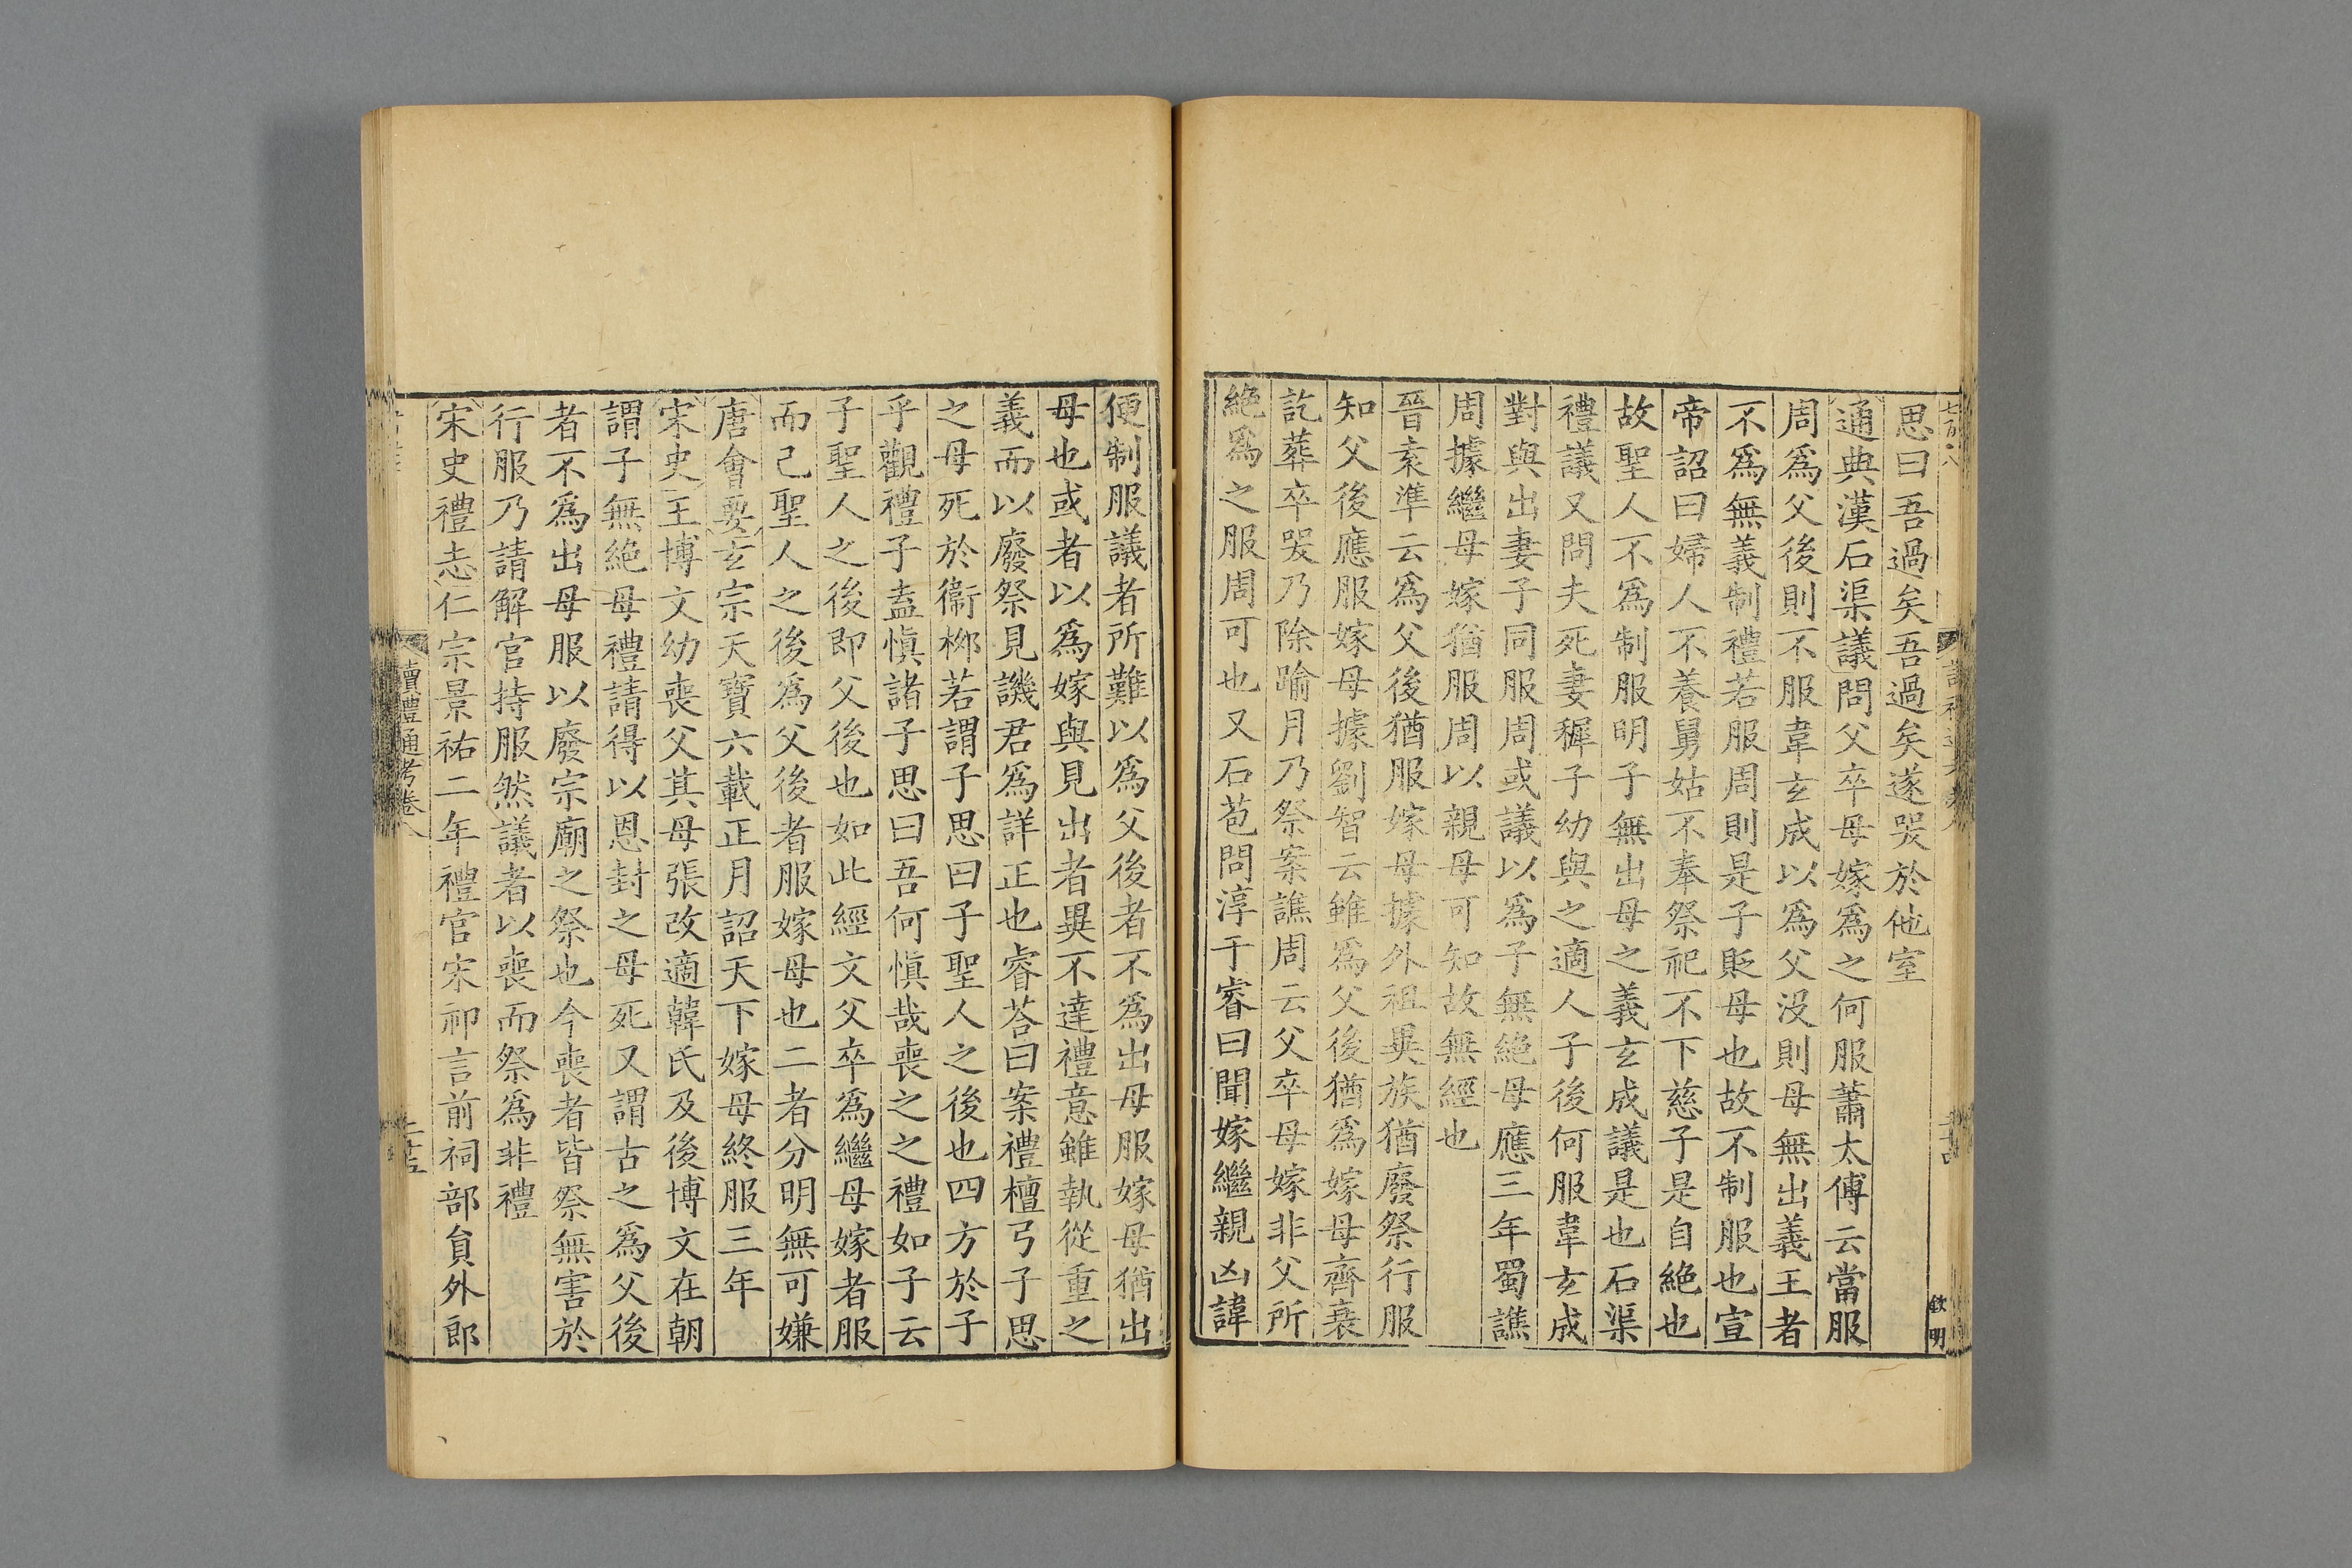 思曰吾過矣吾過矣遂哭於他室
通典漢石渠議問父卒母嫁爲之何服蕭太傅云當服
周爲父後則不服韋玄成以爲父沒則母無出義王者
不爲無義制禮若服周則是子貶母也故不制服也宣
帝詔曰婦人不養舅姑不奉祭祀不下慈子是自絶也
故聖人不爲制服明子無出母之義玄成議是也石渠
禮議又問夫死妻穉子幼與之適人子後何服韋玄成
對與出妻子同服周或議以爲子無絶母應三年蜀譙
周據繼母嫁猶服周以親母可知故無經也
晉袁準云爲父後猶服嫁母據外祖異族猶廢祭行服
知父後應服嫁母據劉智云雖爲父後猶爲嫁母齊衰
訖葬卒哭乃除踰月乃祭案譙周云父卒母嫁非父所
絶爲之服周可也又石苞問淳于睿曰聞嫁繼親凶諱
便制服議者所難以爲父後者不爲出母服嫁母猶出
母也或者以爲嫁與見出者異不達禮意雖執從重之
義而以廢祭見譏君爲詳正也睿荅曰案禮檀弓子思
之母死於衞栁若謂子思曰子聖人之後也四方於子
乎觀禮子盍愼諸子思曰吾何愼哉喪之之禮如子云
子聖人之後即父後也如此經文父卒爲繼母嫁者服
而己聖人之後爲父後者服嫁母也二者分明無可嫌
唐會要玄宗天寶六載正月詔天下嫁母終服三年
宋史王博文幼喪父其母張改適韓氏及後博文在朝
謂子無絶母禮請得以恩封之母死又謂古之爲父後
者不爲出母服以廢宗廟之祭也今喪者皆祭無害於
行服乃請解官持服然議者以喪而祭爲非禮
宋史禮志仁宗景祐二年禮官宋祁言前祠部貟外郎
讀禮通考卷八